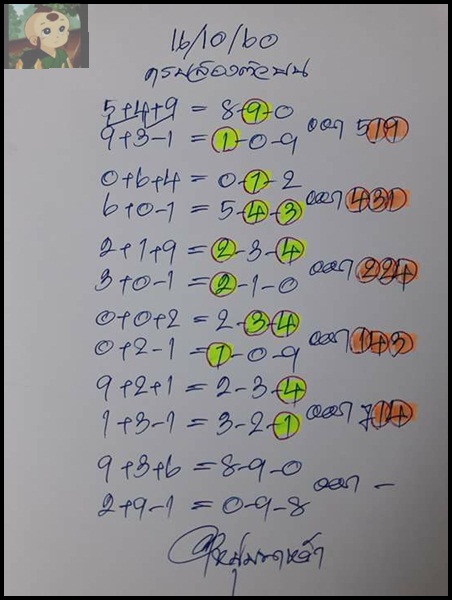 16/10/60
ครบสองตัวบน
5+4+9 = 8-9-0
9+3-1 = 1-0-9
ออก 519
0+6+4 = 0-1-2
6+0-1 = 5-4-3
ออก 431
2+1+9 = 2-3-4
3+0-1 = 2-1-0
ออก 224
0+0+2 = 2-3-4
0+2-1 = 1-0-9
ออก 143
9+2+1 = 2-3-4
1+3-1 = 3-2-1
ออก 714
9+3+6 = 8-9-0
2+9-1 = 0-9-8
ออก -